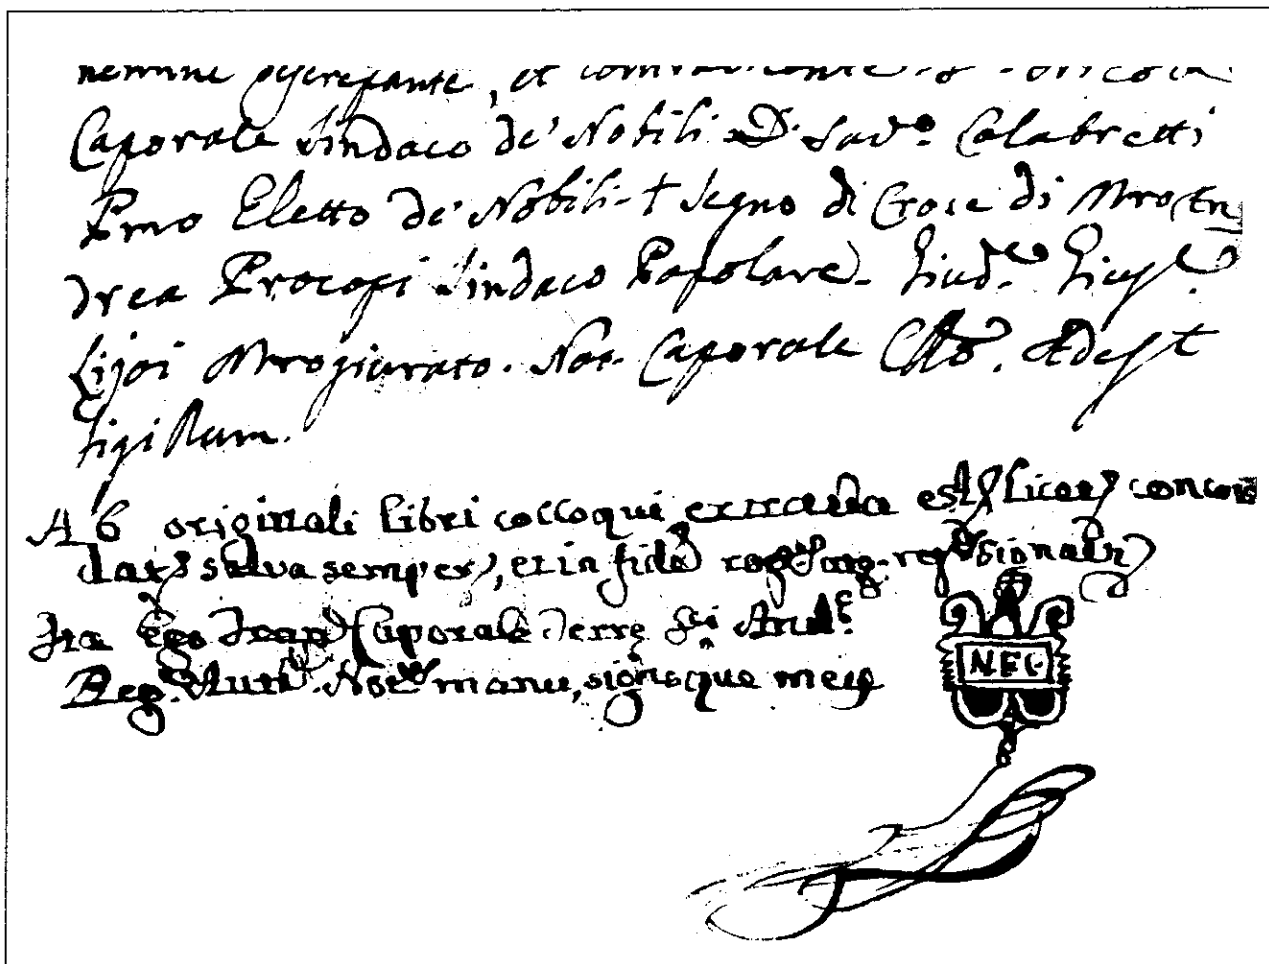 nemine discrepante, et
Caporale Sindaco de' Nobili D. Sav.º Calabretti
Pmo Eletto de' Nobili - † Segno di Croce di Mro An
drea Procopi Sindaco Popolare. Giud.e Gius.e
Lijoi Mrogiurato. Not. Caporale Canc.º. Adest
Sigillum.
A b originali libri colloqui extracta est, licet concor
dat, salva semper, et in fide
Ita Ego Caporale Terre Sci And.e
Reg.s Not.s manu, signoque meis
NFC